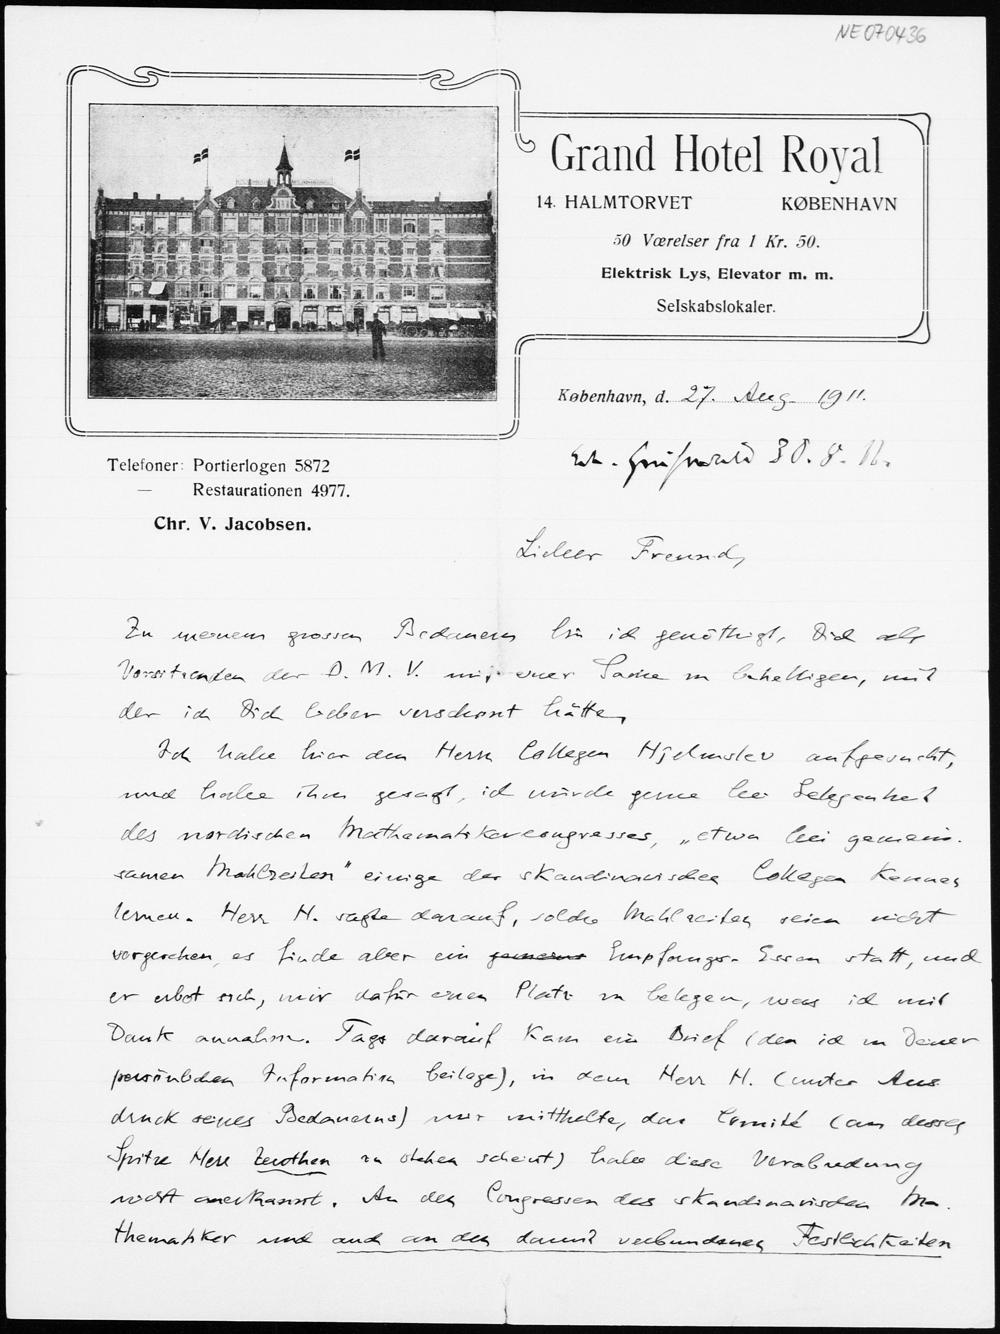 NE070436
Grand Hotel Royal
14. HALMTORVET KØBENHAVN
50 Værelser fra 1 Kr. 50.
Elektrisk Lys, Elevator m. m.
Selskabslokaler.
København, d. 27. Aug. 1911.
Greifswald 30. 8. 11.
Telefoner: Portierlogen 5872
— Restaurationen 4977.
Chr. V. Jacobsen.
Lieber Freund,
Zu meinem grossen Bedauern bin ich genöthigt, Dich als
Vorsitzenden der D. M. V. mit einer Sache zu behelligen, mit
der ich Dich lieber verschont hätte.
Ich habe hier den Herrn Collegen Hjelmslev aufgesucht,
und habe ihm gesagt, ich würde gerne bei Gelegenheit
des nordischen Mathematikercongresses, „etwa bei gemein-
samen Mahlzeiten" einige der skandinavischen Collegen kennen
lernen. Herr H. sagte darauf, solche Mahlzeiten seien nicht
vorgesehen, es finde aber ein Empfangs-Essen statt, und
er erbot sich, mir dafür einen Platz zu belegen, was ich mit
Dank annahm. Tags darauf kam ein Brief (den ich zu Deiner
persönlichen Information beilege), in dem Herr H. (unter Aus
druck seines Bedauerns) mir mittheilte, das Comité (an dessen
Spitze Herr Zeuthen zu stehen scheint) habe diese Verabredung
nicht anerkannt. An den Congressen des skandinavischen Ma-
thematiker und auch an den damit verbundenen Festlichkeiten